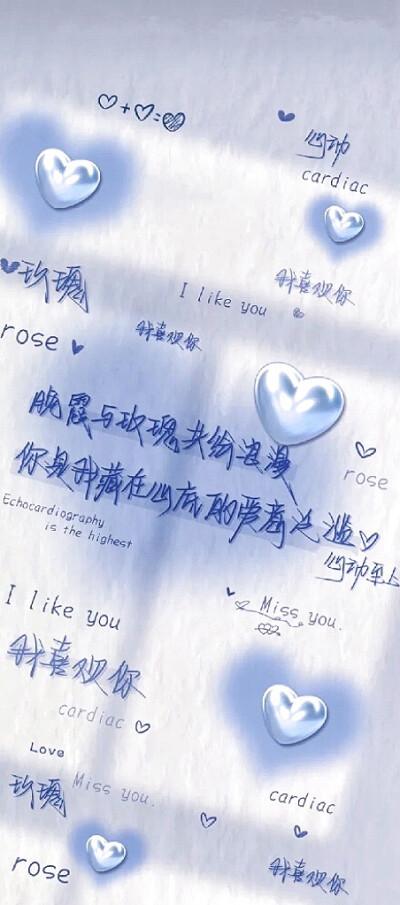 心动
cardiac
玫瑰
I like you
我喜欢你
rose
我喜欢你
晚霞与玫瑰共纷浪漫
rose
你是我藏在心底的爱意泛滥
Echocardiography
is the highest
心动至上
I like you
Miss you.
我喜欢你
cardiac
Love
玫瑰
Miss you.
cardiac
rose
我喜欢你